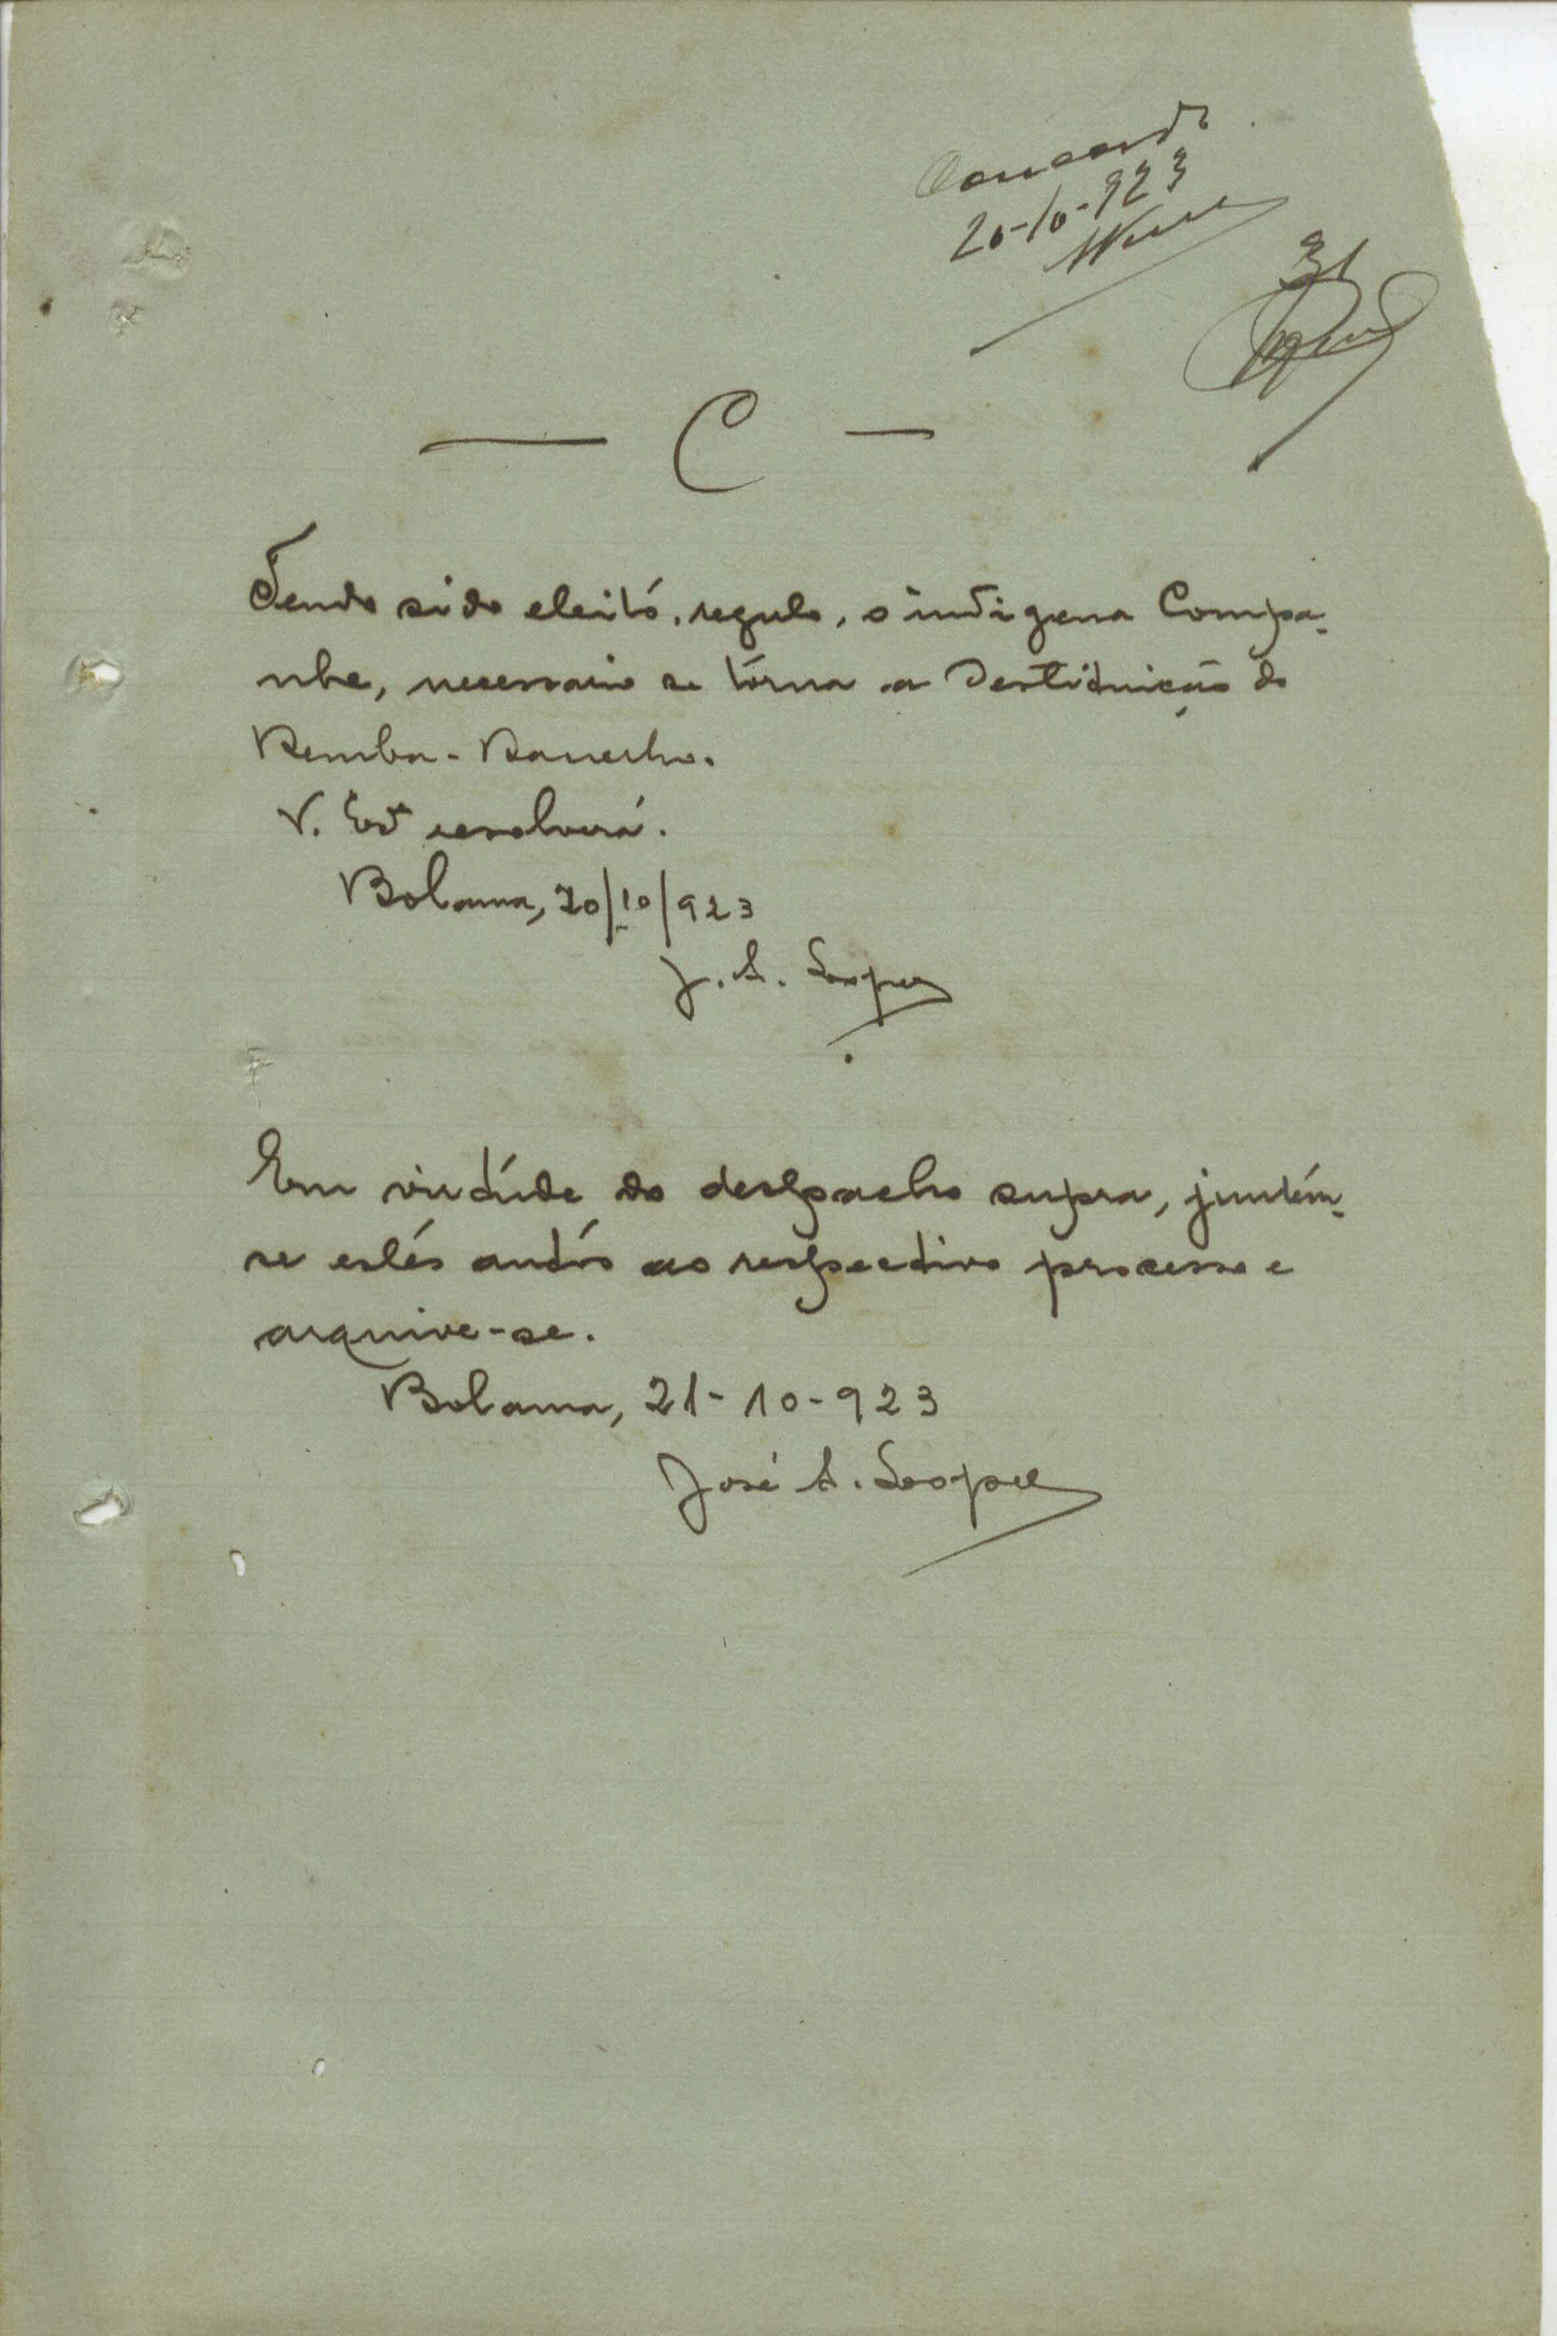 Concordo
20-10-923
31
— C —
Tendo sido eleitó, regulo, o indigena Compa-
nhe, necessario se tórna a destituição do
Bemba-
V. Exª resolverá.
Bolama, 20/10/923
J. A. Lopes
Em virtúde do despacho supra, juntém-
se estés autós ao respectivo processo e
arquive-se.
Bolama, 21-10-923
José A. Lopes